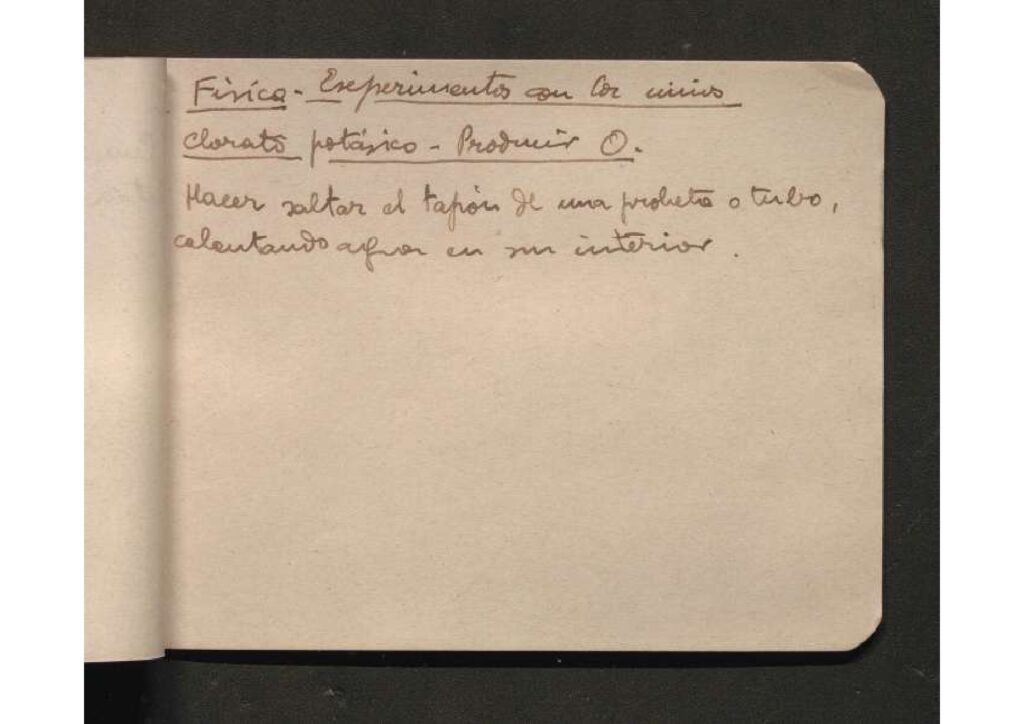 Física - Experimentos con los niños
clorato potásico - Producir O.
Hacer saltar el tapón de una probeta o tubo,
calentando agua en su interior.